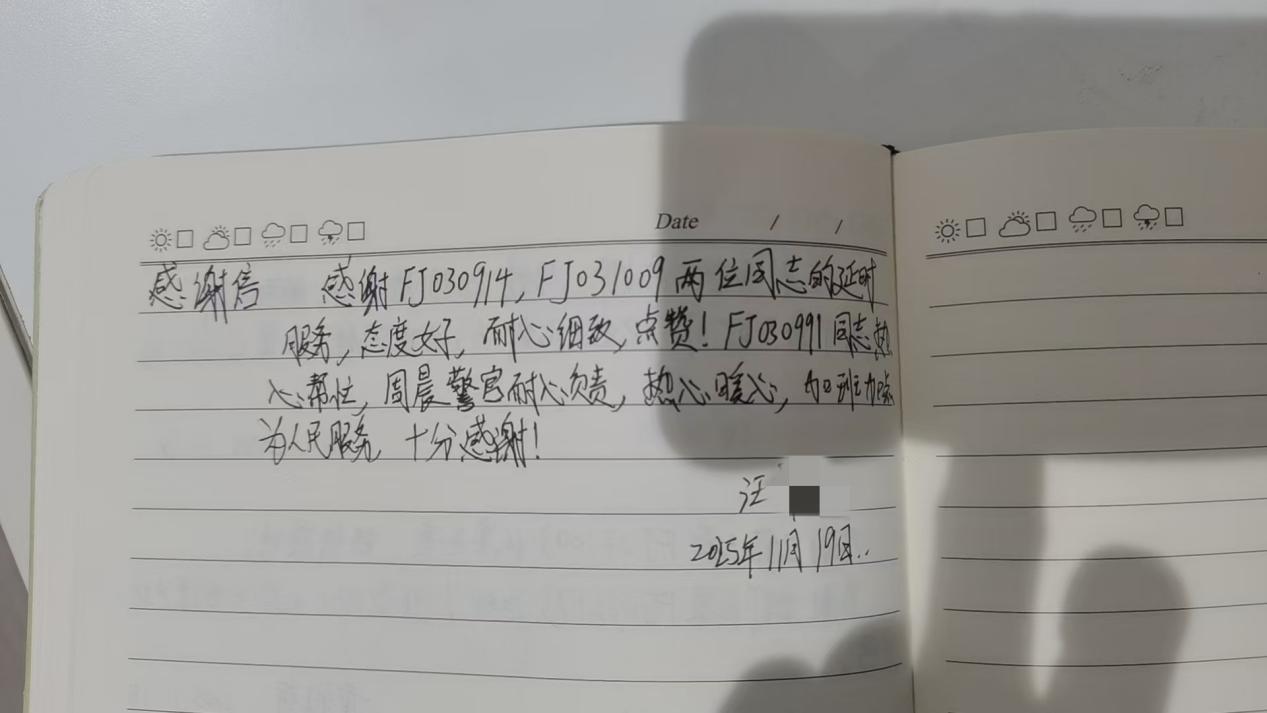 Date / /
感谢信 感谢FJ030914, FJ031009两位同志的延时
服务,态度好,耐心细致,点赞! FJ030991同志热
心帮忙,周晨警官耐心负责,热心暖心,加班加点
为人民服务 十分感谢!
汪
2025年11月19日..